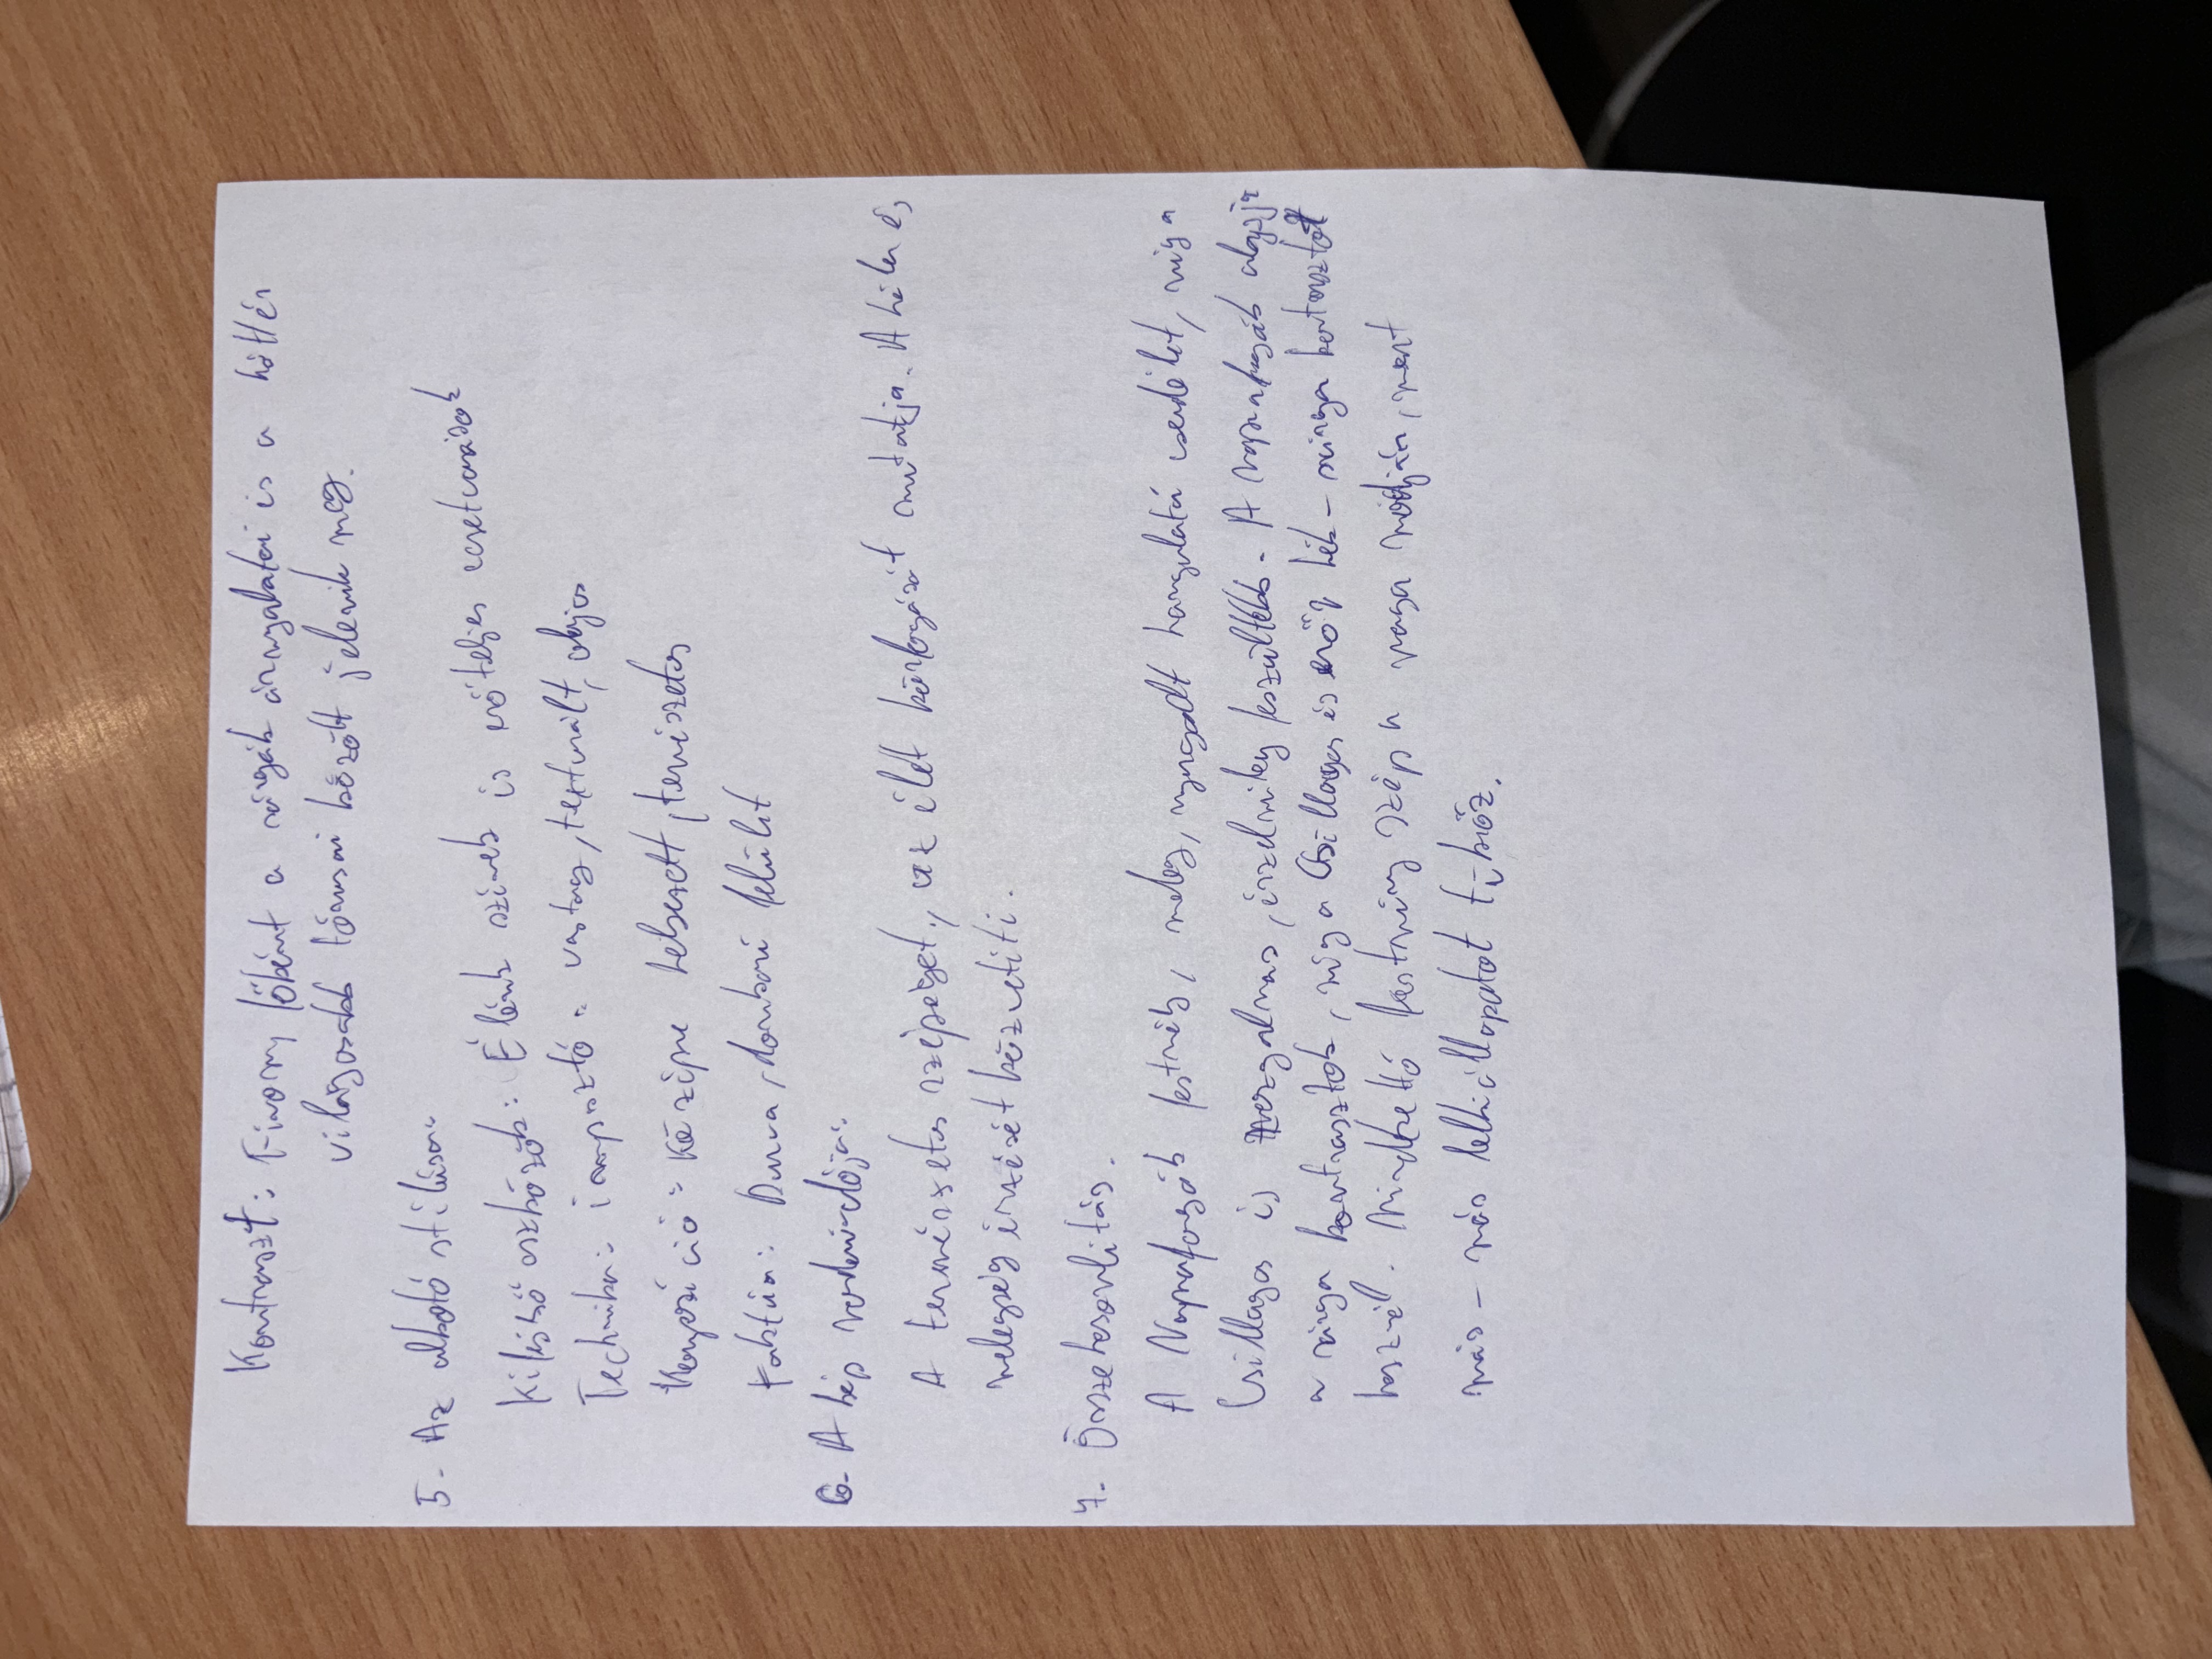 Kontraszt: Finom főként a virágok árnyalatai és a háttér
világosabb tónusai között jelenik meg.
5. Az alkotó stílusa:
Kifejező eszközök: Élénk színek és erőteljes ecsetvonások
Technika: impasztó: vastag, texturált, olajos
Kompozíció: Középre helyezett, természetes
Faktúra: Durva, domború felület
6. A kép mondanivalója:
A természetes szépséget, az élet körforgását mutatja. A hála és
melegség érzését közvetíti.
7. Összehasonlítás.
A Napraforgók festmény, meleg, nyugodt hangulatú csendélet, míg a
Csillagos éj mozgalmas, érzelmileg feszültebb. A napraforgók alapja
a sárga kontrasztok, míg a Csillagos éj erős kék-sárga kontrasztot
használ. Mindkettő festmény szép a maga módján, mert
más-más lelkiállapotot tükröz.